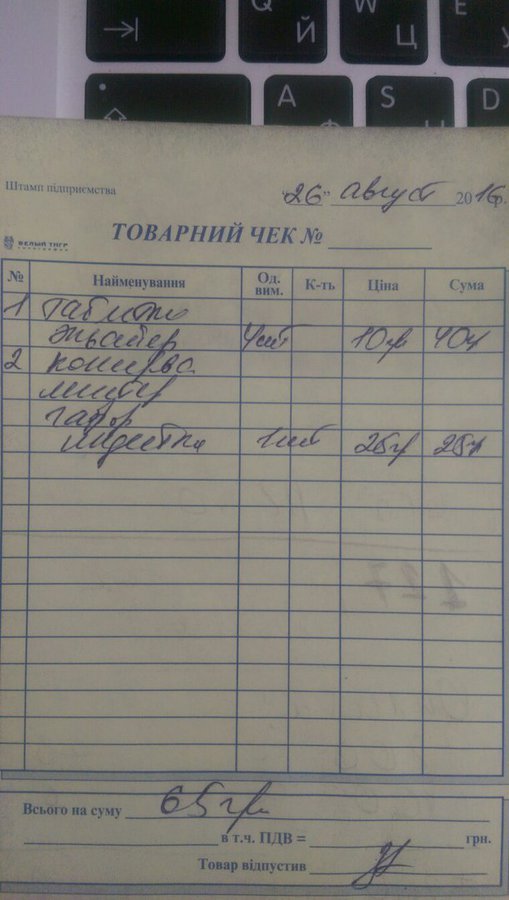 Q Й
W Ц
E У
A Ф
S
D
Штамп підприємства
"26" август 2016 р.
БЕЛЫЙ ТИГР
ТОВАРНИЙ ЧЕК №
№ Найменування Од. вим. К-ть Ціна Сума
1 таблетки
4шт 10гр 40гр
2 консерва
мистер
индейка 1шт 25гр 25гр
Всього на суму 65гр
в т.ч. ПДВ = грн.
Товар відпустив